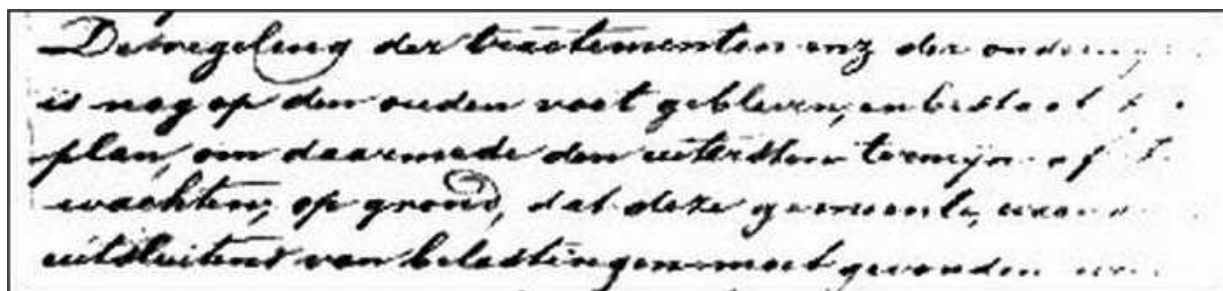 De regeling der tractementen enz der
is nog op den ouden voet gebleven, en bestaat
plan, om daarmede den uitersten termijn af
wachten, op grond, dat deze gemeente,
uitsluitend van belastingen moet gevonden